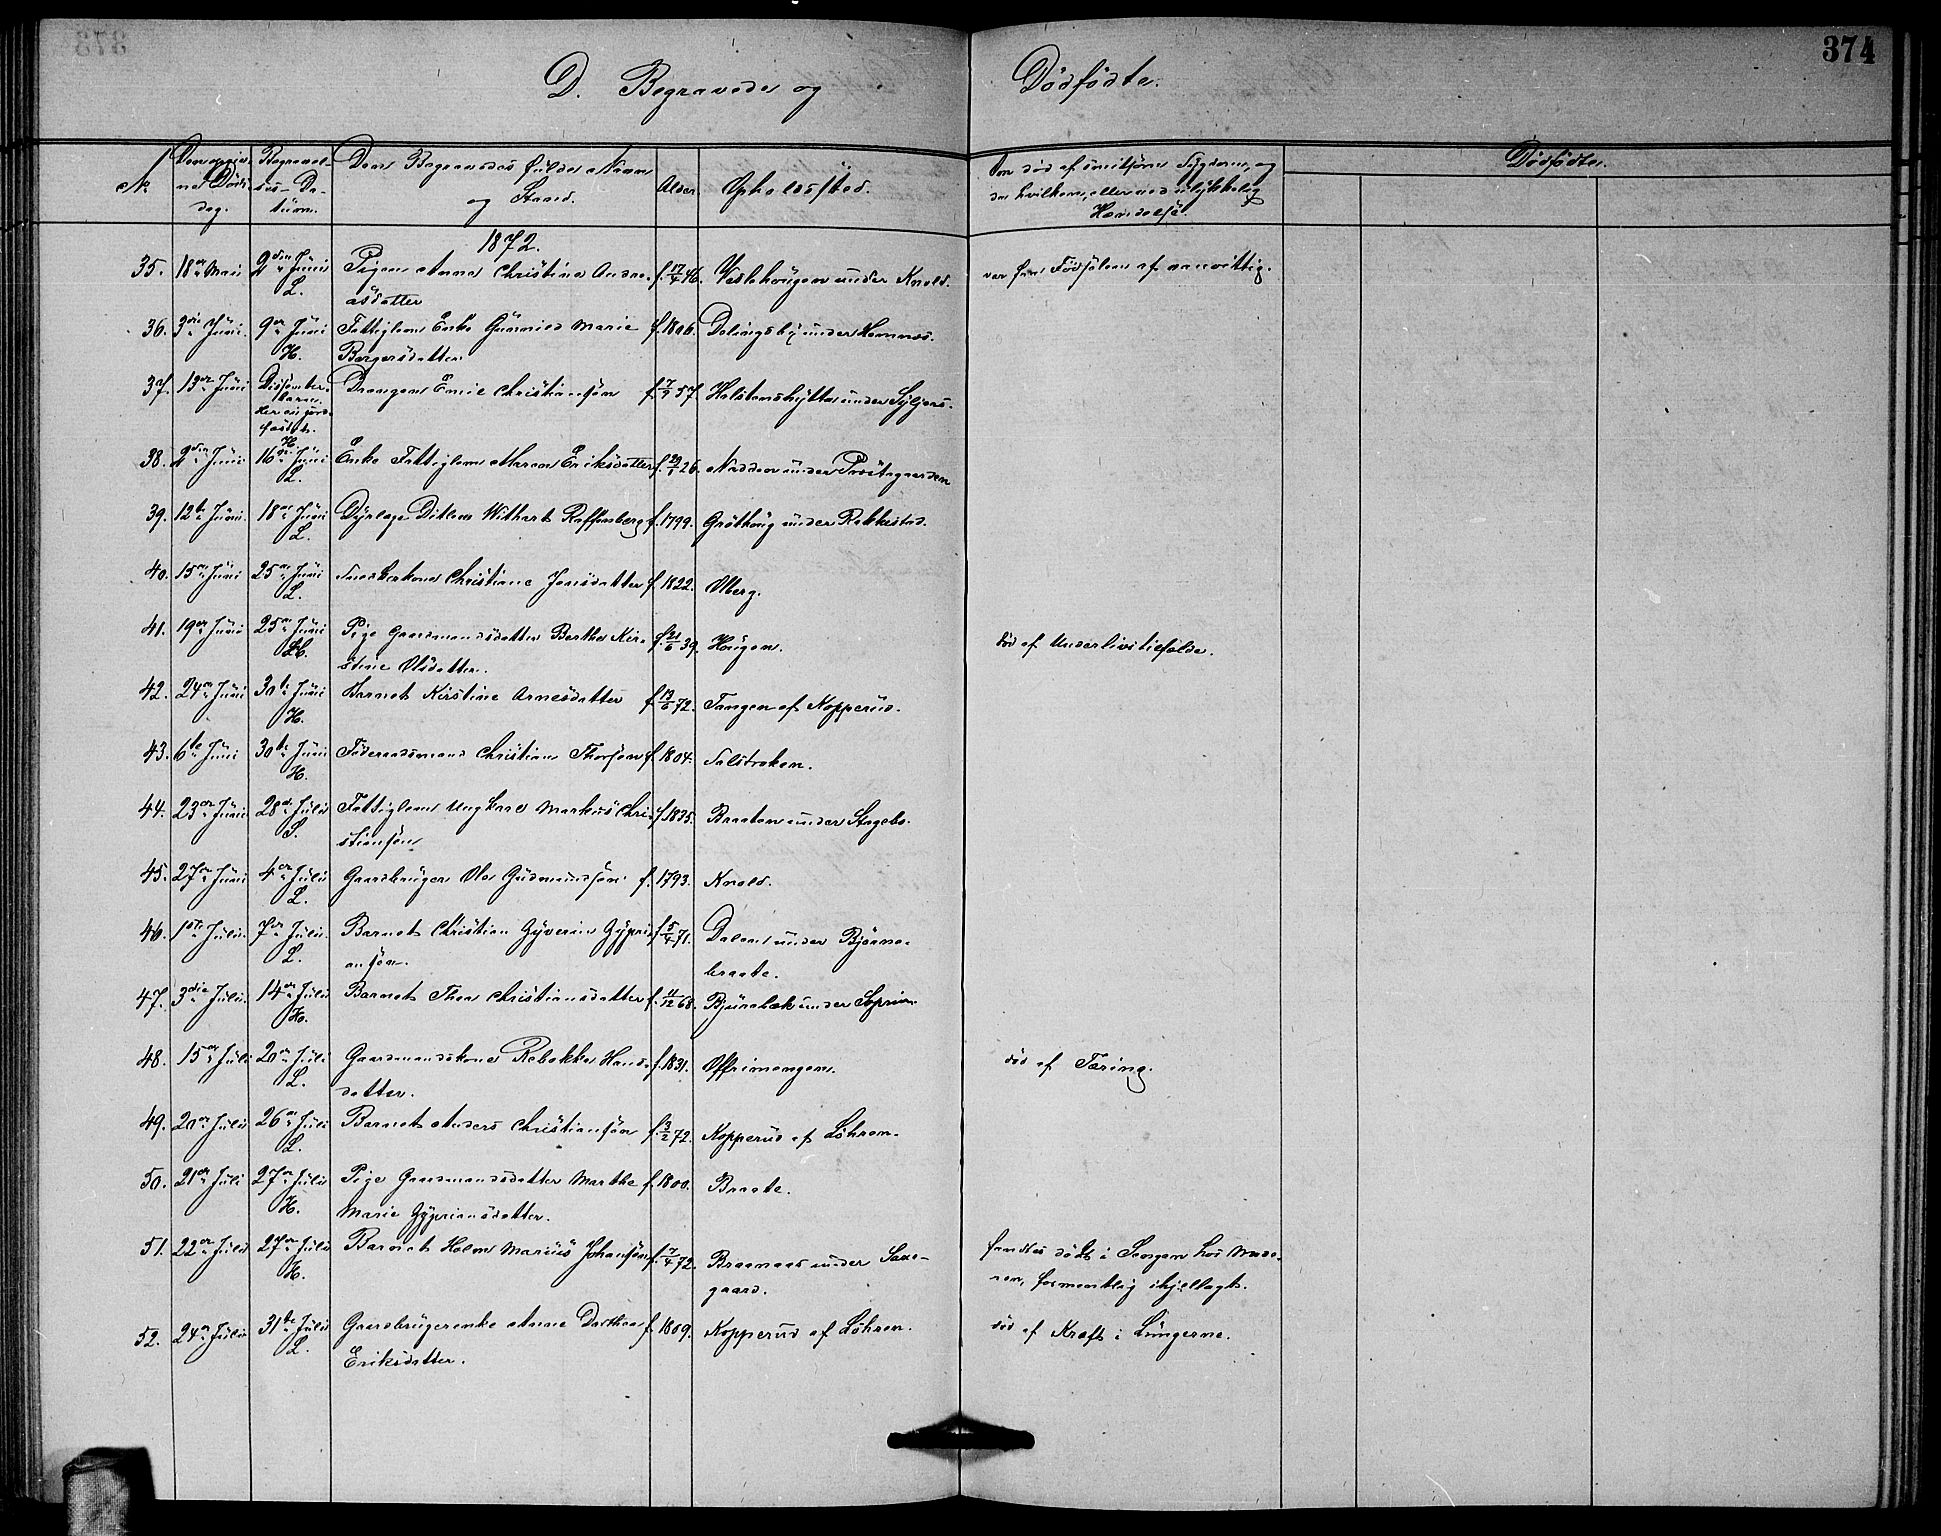 374
D. Begravede og Dødfødte.
No. Den angivne Døds-dag. Begravelses-Datum. Den Begravedes fulde Navn og Stand. Alder Opholdssted. Om død af smitsom Sygdom, og da hvilken, eller ved ulykkelig Hændelse. Dødfødte.
1872.
35. 18de Mai 2den Juni L. Pigen Anna Christine Andreasdatter f. 17/4 46. Veslehaugen under Knold. var fra Fødselen af vanvittig.
36. 3die Juni. 9de Juni H. Fattiglem Enke Gunnild Marie Borgersdatter f. 1806. Dalingsby under Hemnæs.
37. 13de Juni H. Drengen Emil Christiansøn f. 7/9 57. Holstenshytten under
38. 2den Juni 16de Juni L. Enke Fattiglem Maren Eriksdatter f. 29/1 26. Nadden under Præstegaarden
39. 12te Juni. 18de Juni L. Dyrlæge Ditlem Withart Raffenberg f. 1799. Grøthaug under Rakkestad.
40. 15de Juni 25de Juni L. Snedkerkone Christiane Jensdatter f. 1822. Olberg.
41. 19de Juni 25de Juni Pige Gaardmandsdatter Berthe Kirstine Olsdatter. f. 21/6 39. Haugen. død af Underlivstilfælde.
42. 24de Juni 30te Juni H. Barnet Kirstine Arnesdatter f. 13/6 72. Tangen af Kopperud.
43. 6te Juni 30te Juni H. Føderaadsmand Christian Thorsøn f. 1804. Salstroken.
44. 23de Juni 28de Julii S. Fattiglem Ungkarl Markus Christiansøn f. 1835. Braaten under
45. 27de Juni 4de Julii L. Gaardbruger Ole Gudmundsøn f. 1793. Knold.
46. 1ste Julii. 7de Julii. L. Barnet Christian Gyverin Gypriansøn. f. 5/4 71. Dalen under Bjørnebraate.
47. 3die Julii. 14de Julii H. Barnet Thea Christiansdatter f. 11/12 68. Bjurebæk under
48. 15de Juli 20de Juli L. Gaardmandskone Rebekka Hansdatter. f. 1831. Offrimengen. død af Tæring.
49. 20de Julii 26de Juli L. Barnet Anders Christiansøn f. 3/2 72. Kopperud af Løhren.
50. 21de Juli 27de Julii H. Pige Gaardmandsdatter Marthe Marie Gypriansdatter. f. 1800. Braate.
51. 22de Julii 27de Julii H. Barnet Holm Marius Johansøn f. 7/4 72. Braanaas under Saxegaard. fandtes dødt i Sengen hos Moderen, formentlig ihjellagt.
52. 24de Julii 31te Julii L. Gaardbrugerenke Anne Dorthea Eriksdatter. f. 1809. Kopperud af Løhren. død af Kræft i Lungerne.